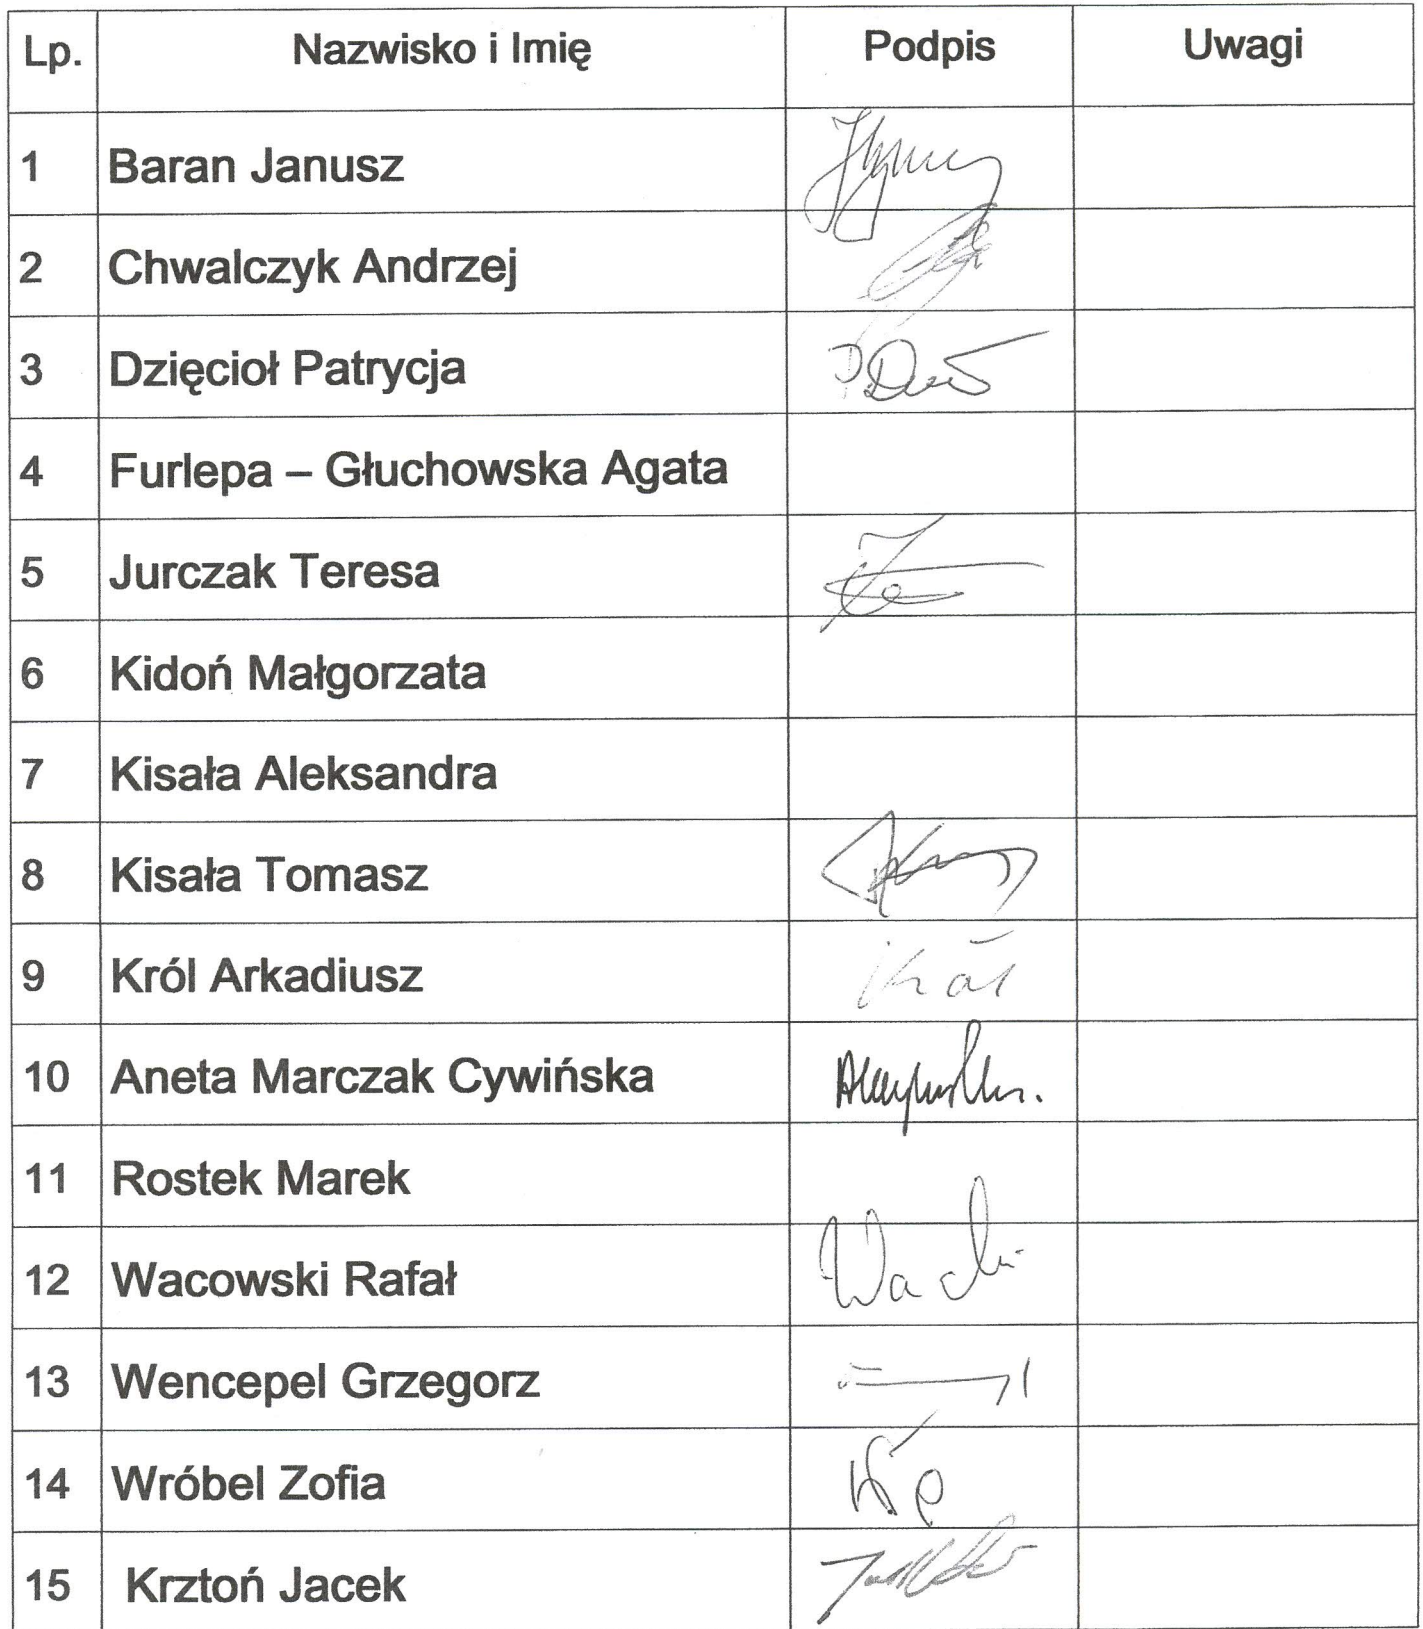 Lp. Nazwisko i Imię Podpis Uwagi
1 Baran Janusz
2 Chwalczyk Andrzej
3 Dzięcioł Patrycja
4 Furlepa – Głuchowska Agata
5 Jurczak Teresa
6 Kidoń Małgorzata
7 Kisała Aleksandra
8 Kisała Tomasz
9 Król Arkadiusz Król
10 Aneta Marczak Cywińska
11 Rostek Marek
12 Wacowski Rafał
13 Wencepel Grzegorz
14 Wróbel Zofia
15 Krztoń Jacek